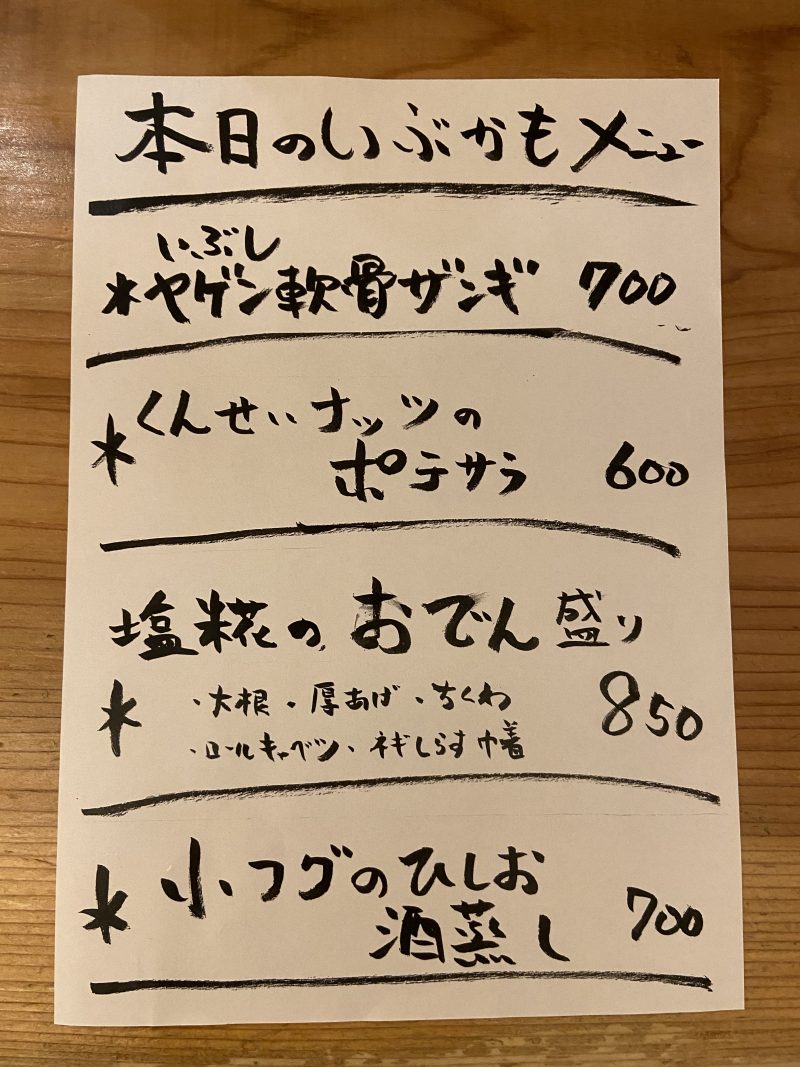 本日のいぶかもメニュー
いぶし
*ヤゲン軟骨ザンギ 700
*くんせいナッツの
ポテサラ 600
塩糀のおでん盛り
* ・大根・厚あげ・ちくわ 850
・ロールキャベツ・ネギしらす巾着
*小フグのひしお
酒蒸し 700